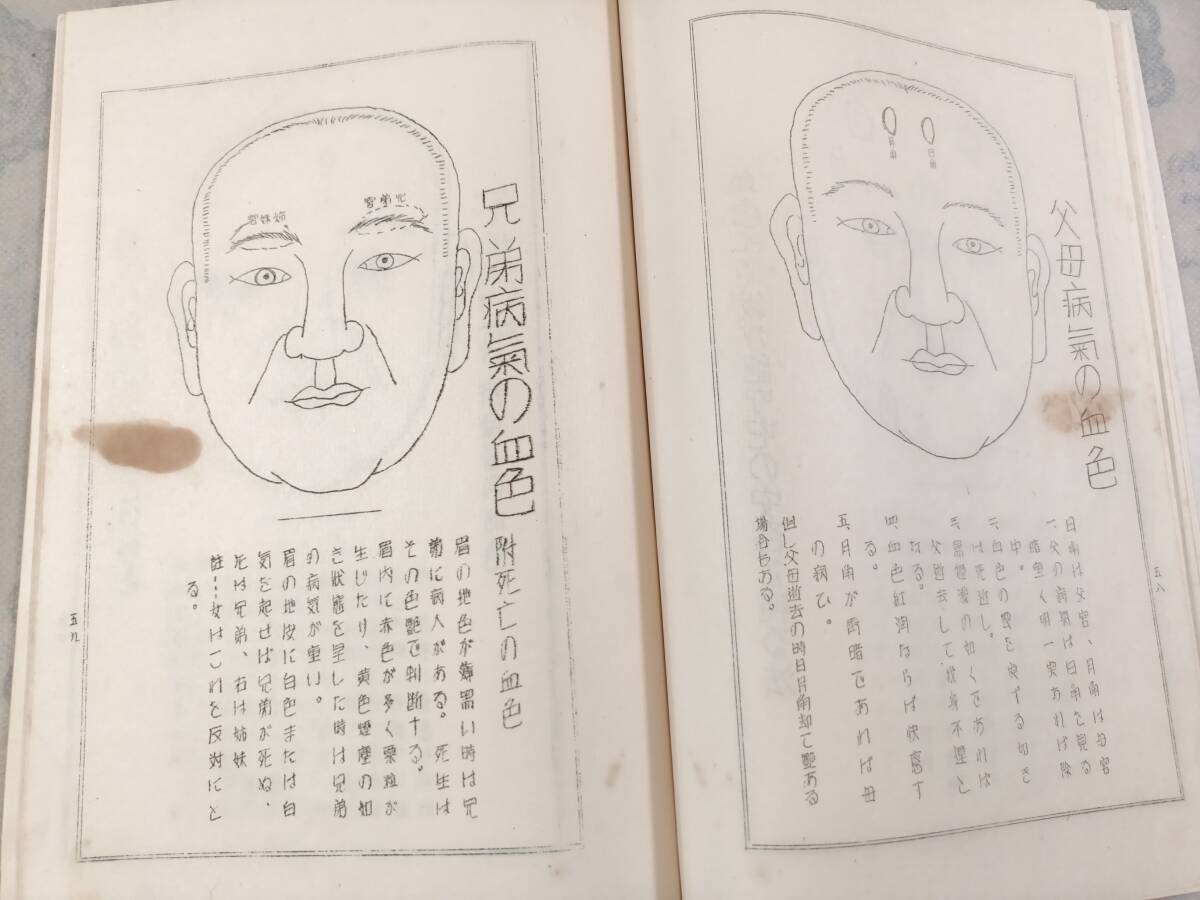 父母病氣の血色
日角
月角
日角は父宮、月角は母宮
一、父の病氣は日角を見る
二、血色の
は死近し。
三、の如くであれば
父逝去して
なる。
四、血色紅潤ならば快癒す
る。
五、月角が青暗であれば母
の病ひ。
但し父母逝去の時日月角却て艶ある
場合もある。
五八
兄弟病氣の血色
附死亡の血色
兄弟宮
姉妹宮
眉の地色が薄黒い時は兄
弟に病人がある。死生は
その色艶で判断する。
眉内に赤色が多く粟粒が
生じたり、黄色煙塵の如
き状態を呈した時は兄弟
の病気が重い。
眉の地皮に白色または白
気を起せば兄弟が死ぬ、
左は兄弟、右は姉妹
註…女はこれを反対にと
る。
五九